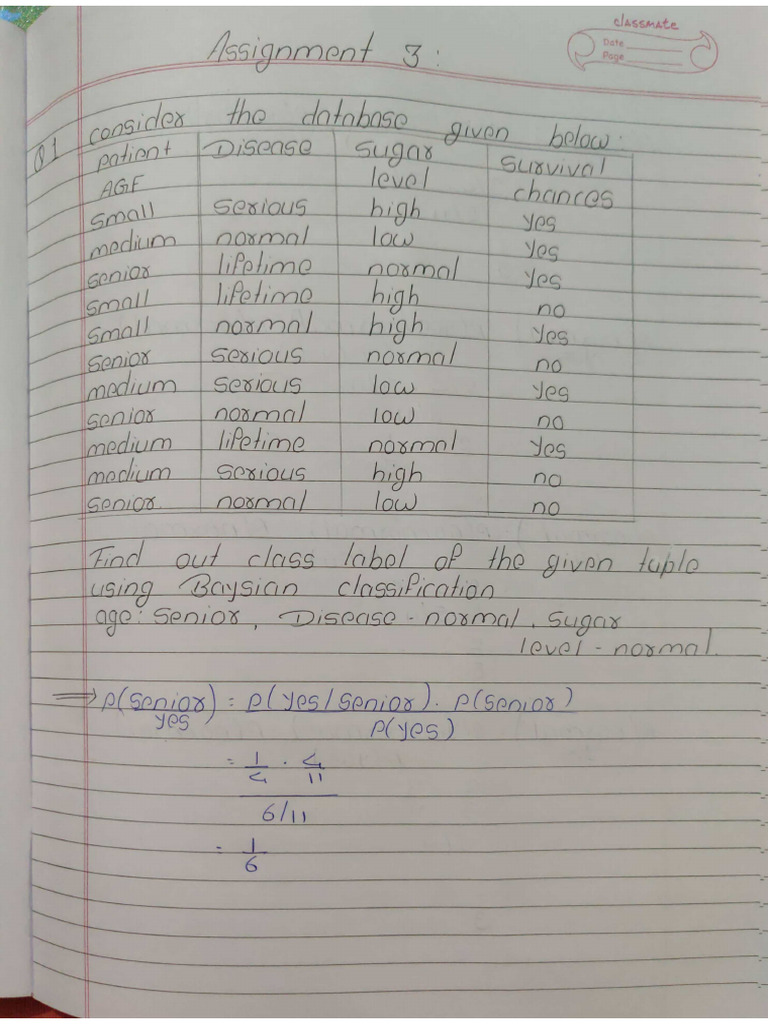 classmate
Date
Page
Assignment 3:
Q1 consider the database given below:
patient Disease sugar survival
AGE level chances
small serious high yes
medium normal low yes
senior lifetime normal yes
small lifetime high no
small normal high yes
senior serious normal no
medium serious low yes
senior normal low no
medium lifetime normal yes
medium serious high no
senior normal low no
Find out class label of the given tuple
using Baysian classification
age: senior, Disease - normal, sugar
level - normal.
⇒ P(senior/yes) = P(yes/senior) . P(senior) / P(yes)
= 1/4 . 4/11
6/11
= 1/6